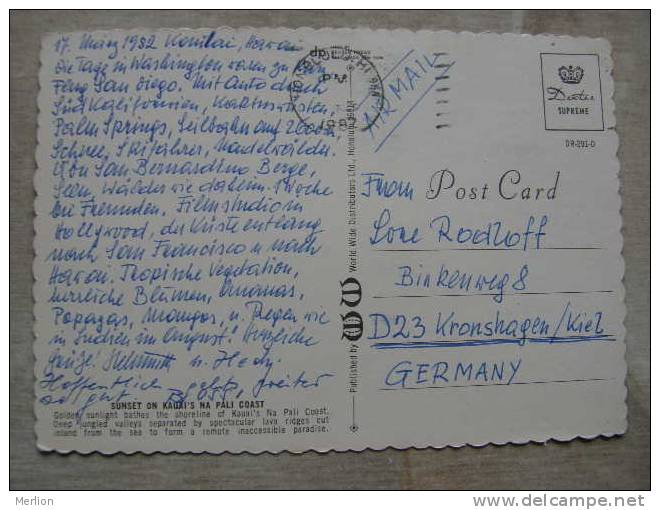 17. März 1982 Hawaii
Die Tage in Washington waren zu
San Diego. Mit Auto durch
Süd Kalifornien, Kakteenwüsten,
Palm Springs, Seilbahn auf 2600m,
Schnee, Skifahrer, Nadelwälder.
San Bernardino Berge,
Seen, Wälder wie daheim. 1 Woche
bei Freunden. Filmstudio in
Hollywood, die Küste entlang
nach San Francisco u nach
Hawai. Tropische Vegetation,
herrliche Blumen, Ananas,
Papayas, Mangos, u. Regen wie
in Indien im August! Herzliche
Grüße! Helmuth u. Hedy.
Hoffentlich geht's weiter
gut.
SUNSET ON KAUAI'S NA PALI COAST
Golden sunlight bathes the shoreline of Kauai's Na Pali Coast.
Deep jungled valleys separated by spectacular lava ridges cut
inland from the sea to form a remote inaccessible paradise.
Published by WW World Wide Distributors Ltd., Honolulu
AIR MAIL
Dexter
SUPREME
DR-201-D
Post Card
Frau
Lore Rodloff
Birkenweg 8
D23 Kronshagen/Kiel
GERMANY
Merlion
www.delcampe.net